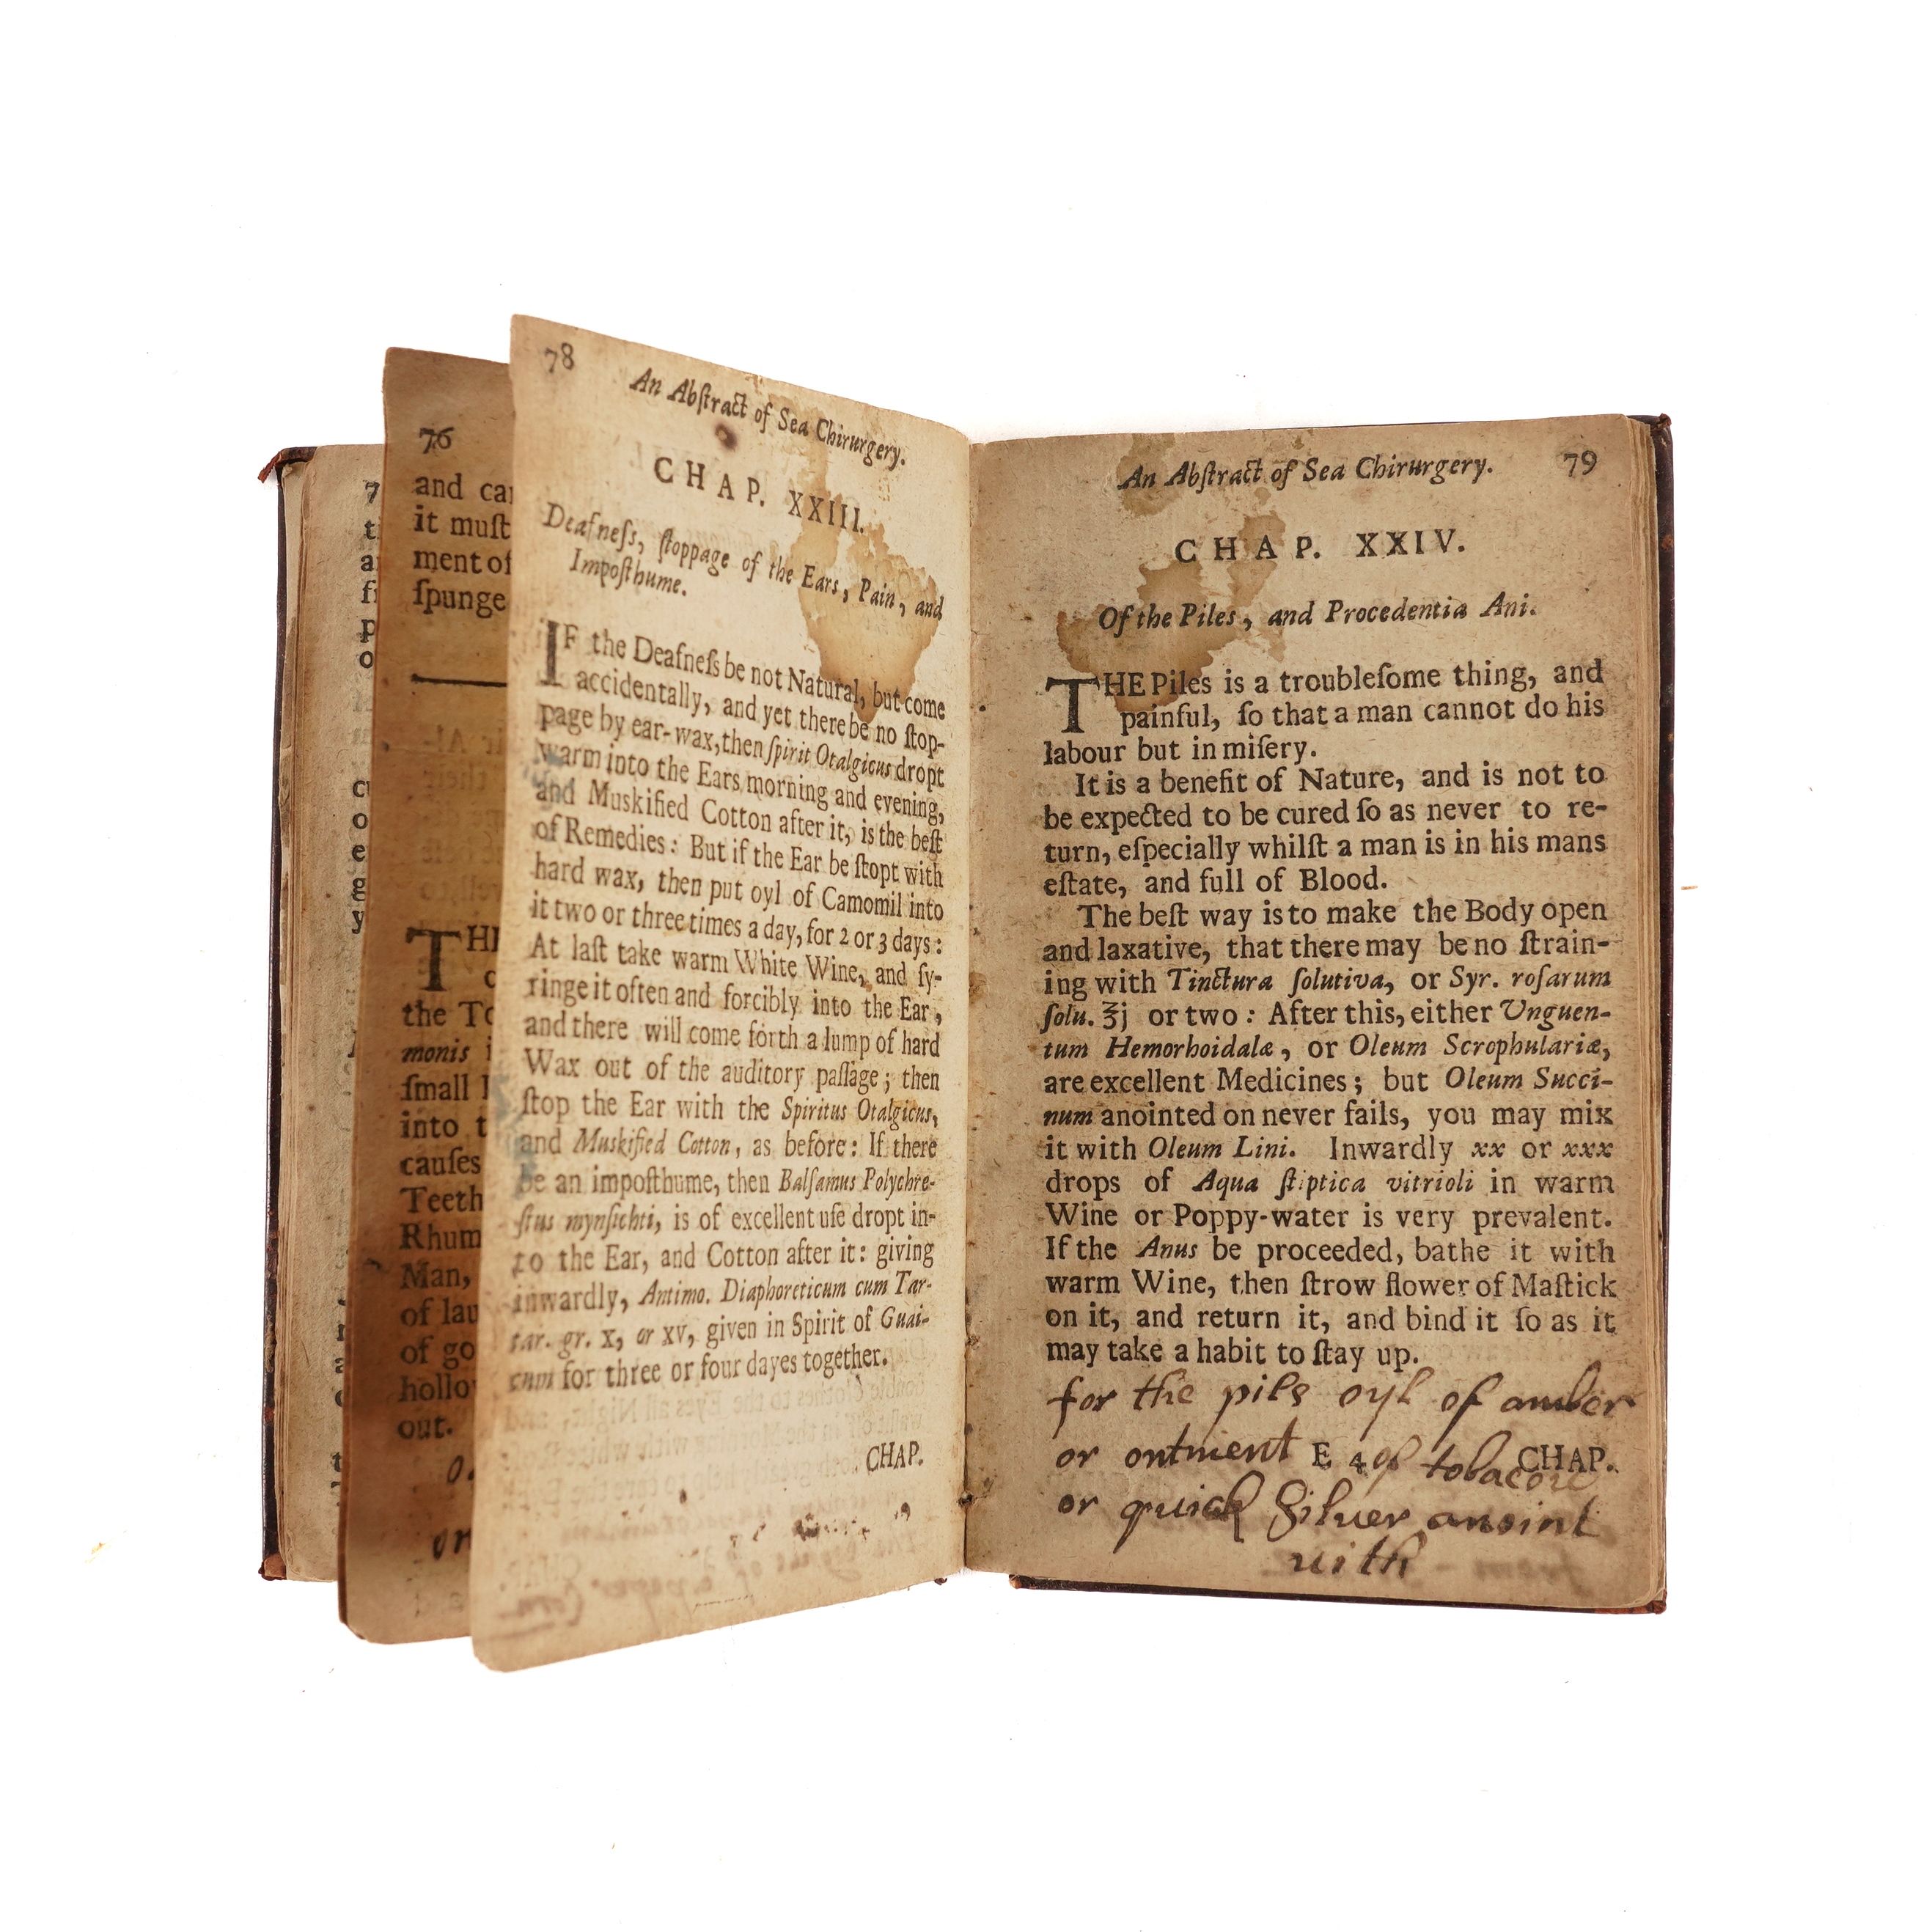 76
and
it muſt
ment of
ſpunge
the
monis
ſmall
into
cauſes
Teeth
Rhum
Man,
of
of
out.
78
An Abſtract of Sea Chirurgery.
CHAP. XXIII.
Deafneſs, ſtoppage of the Ears, Pain, and
Impoſthume.
IF the Deafneſs be not Natural, but come
accidentally, and yet there be no ſtop-
page by ear-wax, then ſpirit Otalgicus dropt
warm into the Ears morning and evening,
and Muskified Cotton after it, is the beſt
of Remedies: But if the Ear be ſtopt with
hard wax, then put oyl of Camomil into
it two or three times a day, for 2 or 3 days:
At laſt take warm White Wine, and ſy-
ringe it often and forcibly into the Ear,
and there will come forth a lump of hard
Wax out of the auditory paſſage; then
ſtop the Ear with the Spiritus Otalgicus,
and Muskified Cotton, as before: If there
be an impoſthume, then Balſamus Polychre-
ſtus mynſichti, is of excellent uſe dropt in-
to the Ear, and Cotton after it: giving
inwardly, Antimo. Diaphoreticum cum Tar-
tar. gr. x, or xv, given in Spirit of Guai-
cum for three or four dayes together.
CHAP.
An Abſtract of Sea Chirurgery. 79
CHAP. XXIV.
Of the Piles, and Procedentia Ani.
THE Piles is a troubleſome thing, and
painful, ſo that a man cannot do his
labour but in miſery.
It is a benefit of Nature, and is not to
be expected to be cured ſo as never to re-
turn, eſpecially whilſt a man is in his mans
eſtate, and full of Blood.
The beſt way is to make the Body open
and laxative, that there may be no ſtrain-
ing with Tinctura ſolutiva, or Syr. roſarum
ſolu. ℥j or two: After this, either Unguen-
tum Hemorhoidalæ, or Oleum Scrophulariæ,
are excellent Medicines; but Oleum Succi-
num anointed on never fails, you may mix
it with Oleum Lini. Inwardly xx or xxx
drops of Aqua ſtiptica vitrioli in warm
Wine or Poppy-water is very prevalent.
If the Anus be proceeded, bathe it with
warm Wine, then ſtrow flower of Maſtick
on it, and return it, and bind it ſo as it
may take a habit to ſtay up.
for the pils oyl of amber
or ontment of tobacore
E 4 CHAP.
or quick Silver anoint
with